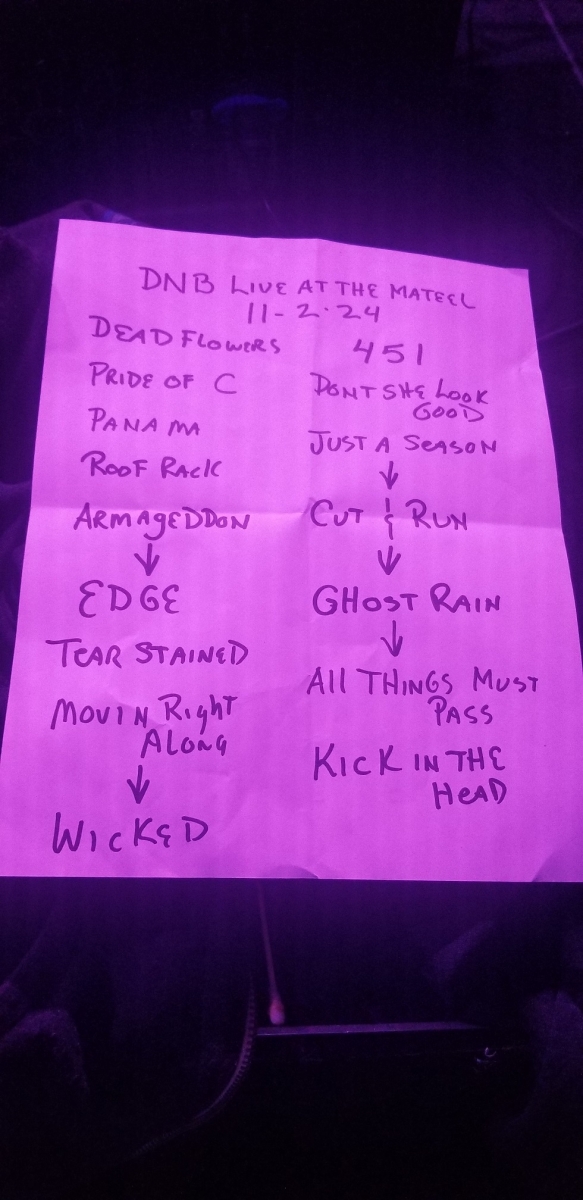 DNB LIVE AT THE MATEEL
11-2-24
DEAD FLOWERS
PRIDE OF C
PANAMA
ROOF RACK
ARMAGEDDON
↓
EDGE
TEAR STAINED
MOVIN RIGHT
ALONG
↓
WICKED
451
DONT SHE LOOK
GOOD
JUST A SEASON
↓
CUT & RUN
↓
GHOST RAIN
↓
All THINGS MUST
PASS
KICK IN THE
HEAD